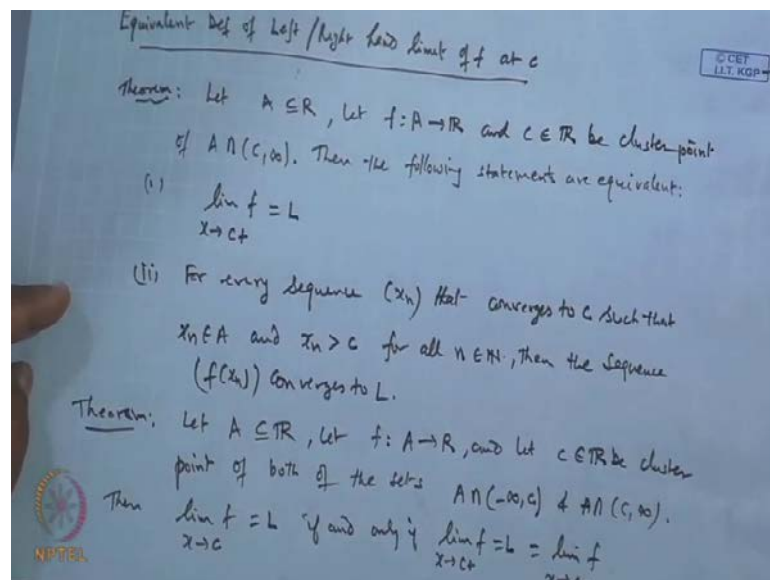 Equivalent Def of Left / Right hand limit of f at c
© CET
I.I.T. KGP
Theorem: Let A ⊆ R, Let f: A → IR and c ∈ IR be cluster point
of A ∩ (c, ∞). Then the following statements are equivalent:
(i) lim f = L
x → c+
(ii) For every sequence (xn) that converges to c such that
xn ∈ A and xn > c for all n ∈ IN, then the sequence
(f(xn)) converges to L.
Theorem: Let A ⊆ IR, Let f: A → R, and let c ∈ IR be cluster
point of both of the sets A ∩ (-∞, c) & A ∩ (c, ∞).
Then lim f = L if and only if lim f = L = lim f
x → c x → c+
NPTEL